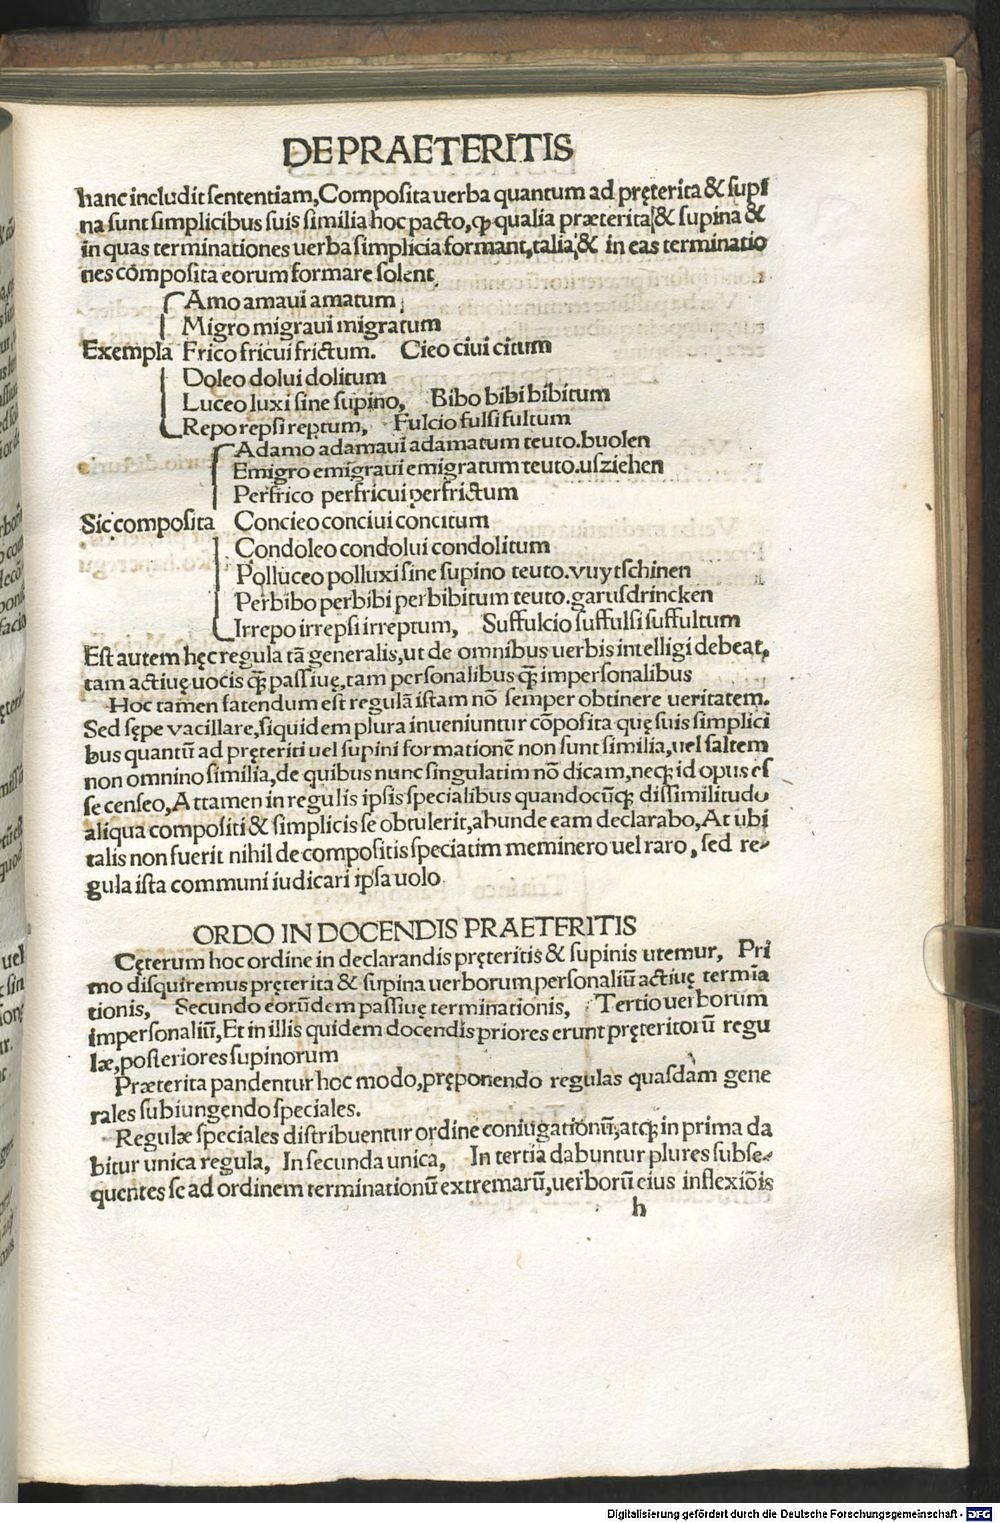 DE PRAETERITIS
hanc includit sententiam, Composita uerba quantum ad pręterita & supi
na sunt simplicibus suis similia hoc pacto, ꝙ qualia præterita & supina &
in quas terminationes uerba simplicia formant, talia, & in eas terminatio
nes composita eorum formare solent
Amo amaui amatum
Migro migraui migratum
Exempla Frico fricui frictum. Cieo ciui citum
Doleo dolui dolitum
Luceo luxi sine supino, Bibo bibi bibitum
Repo repsi reptum, Fulcio fulsi fultum
Adamo adamaui adamatum teuto. buolen
Emigro emigraui emigratum teuto. usziehen
Perfrico perfricui perfrictum
Sic composita Concieo conciui concitum
Condoleo condolui condolitum
Polluceo polluxi sine supino teuto. vuytschinen
Perbibo perbibi perbibitum teuto. garusdrincken
Irrepo irrepsi irreptum, Suffulcio suffulsi suffultum
Est autem hęc regula tā generalis, ut de omnibus uerbis intelligi debeat,
tam actiuę uocis ꝙ̃ passiuę, tam personalibus ꝙ̃ impersonalibus
Hoc tamen fatendum est regulā istam nō semper obtinere ueritatem.
Sed sępe vacillare, siquidem plura inueniuntur cōposita quę suis simplici
bus quantū ad pręteriti uel supini formationē non sunt similia, uel saltem
non omnino similia, de quibus nunc singulatim nō dicam, neqꝫ id opus es
se censeo, Attamen in regulis ipsis specialibus quandocūqꝫ dissimilitudo
aliqua compositi & simplicis se obtulerit, abunde eam declarabo, At ubi
talis non fuerit nihil de compositis speciatim meminero uel raro, sed re-
gula ista communi iudicari ipsa uolo
ORDO IN DOCENDIS PRAETERITIS
Cęterum hoc ordine in declarandis pręteritis & supinis utemur, Pri
mo disquiremus pręterita & supina uerborum personaliū actiuę termīa
tionis, Secundo eorūdem passiuę terminationis, Tertio uerborum
impersonaliū, Et in illis quidem docendis priores erunt pręteritorū regu
læ, posteriores supinorum
Præterita pandentur hoc modo, pręponendo regulas quasdam gene
rales subiungendo speciales.
Regulæ speciales distribuentur ordine coniugationū, atqꝫ in prima da
bitur unica regula, In secunda unica, In tertia dabuntur plures subse-
quentes se ad ordinem terminationū extremarū, uerborū eius inflexiōis
h
Digitalisierung gefördert durch die Deutsche Forschungsgemeinschaft - DFG